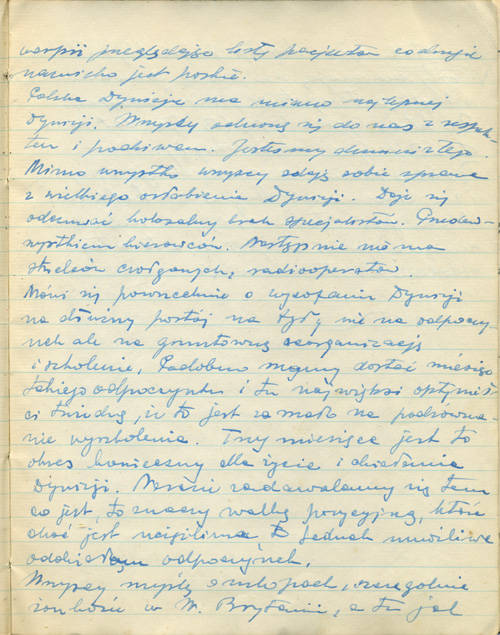 przeglądając listy pacjentów co drugie
nazwisko jest polskie.
Polska Dywizja ma miano najlepszej
Dywizji. Wszyscy odnoszą się do nas z respek-
tem i podziwem. Jesteśmy dumni z tego.
Mimo wszystko wszyscy zdają sobie sprawę
z wielkiego osłabienia Dywizji. Daje się
odczuwać kolosalny brak specjalistów. Przede-
wszystkiem kierowców. Następnie mamy
strzelców czołgowych, radiooperatorów.
Mówi się powszechnie o wycofaniu Dywizji
na dłuższy postój na tyły, nie na odpoczy
nek ale na gruntowną reorganizację
i szkolenie. Podobno mamy dostać miesiąc
takiego odpoczynku i tu najwięksi optymiś
ci twierdzą, iż to jest za mało na podrówna-
nie wyszkolenia. Trzy miesiące jest to
okres konieczny dla życia i działania
Dywizji. Narazie zadawalamy się tem
co jest, to znaczy walką pozycyjną, która
choć jest to jednak umożliwia
oddziałom odpoczynek.
Wszyscy myślą o urlopach, szczególnie
w W. Brytanii, a tu jak